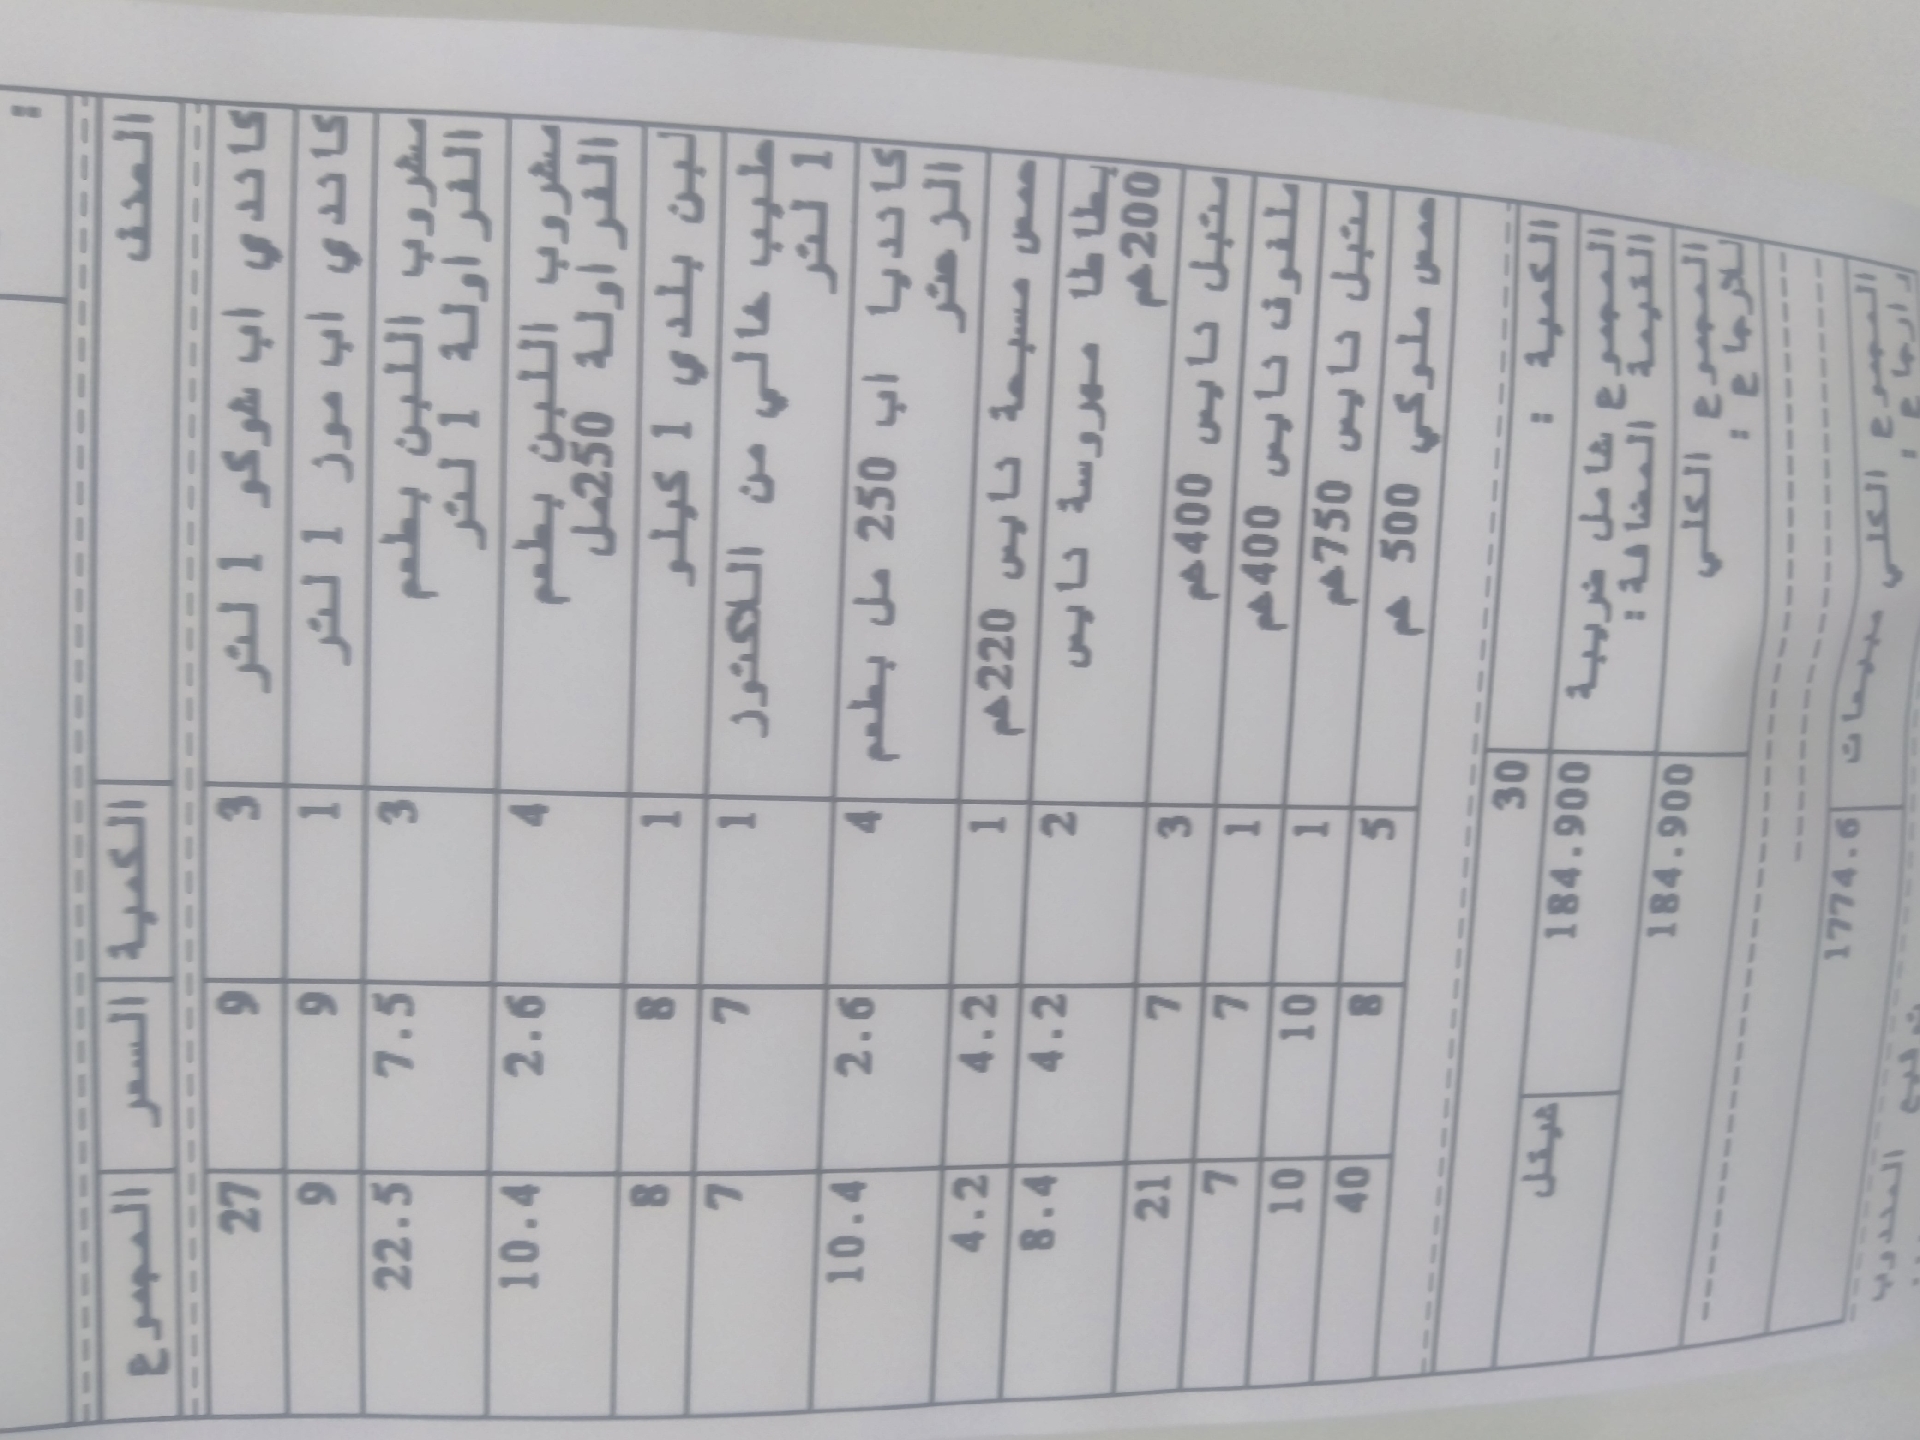 :
الصنف الكمية السعر المجموع
كاندي اب شوكو 1 لتر 3 9 27
كاندي اب موز 1 لتر 1 9 9
مشروب اللبن بطعم 3 7.5 22.5
الفراولة 1 لتر
مشروب اللبن بطعم 4 2.6 10.4
الفراولة 250مل
لبن بلدي 1 كيلو 1 8 8
حليب خالي من اللاكتوز 1 7 7
1 لتر
كانديا اب 250 مل بطعم 4 2.6 10.4
حمص مسبحة نايس 220غم 1 4.2 4.2
بطاطا مهروسة نايس 2 4.2 8.4
200غم
متبل نايس 400غم 3 7 21
ملفوف نايس 400غم 1 7 7
متبل نايس 750غم 1 10 10
حمص ملوكي 500 غم 5 8 40
الكمية : 30
المجموع شامل ضريبة 184.900 شيكل
القيمة المضافة:
المجموع الكلي 184.900
للارجاع :
المجموع الكلي مبيعات 1774.6
ارجاع :
توقيع المندوب